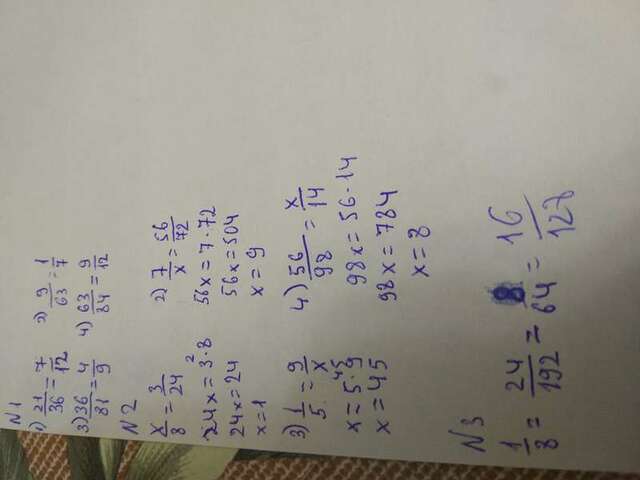 N1
1) 21/36 = 7/12 2) 9/63 = 1/7
3) 36/81 = 4/9 4) 63/84 = 9/12
N2
x/8 = 3/24 2) 7/x = 56/72
24x = 3·8 56x = 7·72
24x = 24 56x = 504
x = 1 x = 9
3) 1/5 = 9/x 4) 56/98 = x/14
x = 5·9 98x = 56·14
x = 45 98x = 784
x = 8
N3
1/8 = 24/192 = 8/64 = 16/127